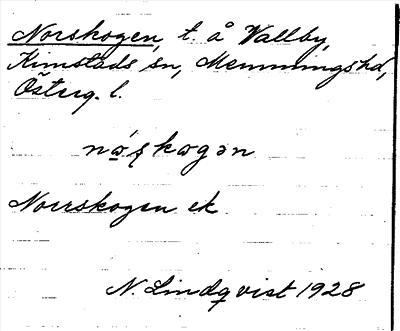 Norskogen, t. å Vallby,
Kimstads sn, Memmingshd,
Österg. l.
nǿʂkogən
Norrskogen ek
N. Lindqvist 1928